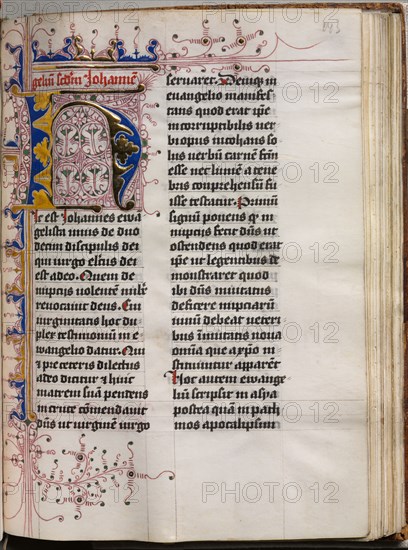 geliū scdm Johannē
Hic est Johannes ewā
gelista unus de duo
decim discipulis dei
qui uirgo elcūs dei
est adeo. Quem de
nupcijs uolentē nub̄e
reuocauit deus. Cui
uirginitatis hoc du
plex testimoniū in e
wangelio datur. Qui
& pre ceteris dilectus
adeo dicitur & huic
matrem suā pendens
in cruce cōmendauit
dn̄s ut uirginē uirgo
seruaret. Deniq; in
euangelio manifes
tans quod erat ip̄e
incorruptibilis uer
bi opus incohans so
lus uerbū carnē fcm̄
esse nec lumē a tene
bris comprehensū fu
isse testatur. Primū
signū ponens qd̄ in
nupcijs fecit dn̄s ut
ostendens quod erat
ip̄e ut legentibus de
monstraret quod
ibi dn̄s inuitatus
deficere nupciarū
uinū debeat ueteri
bus īmutatis noua
omīa que a xp̄o in
stituuntur appareāt
Hoc autem ewange
liū scripsit in asya
postea quā in path
mos apocalipsim
PHOTO 12